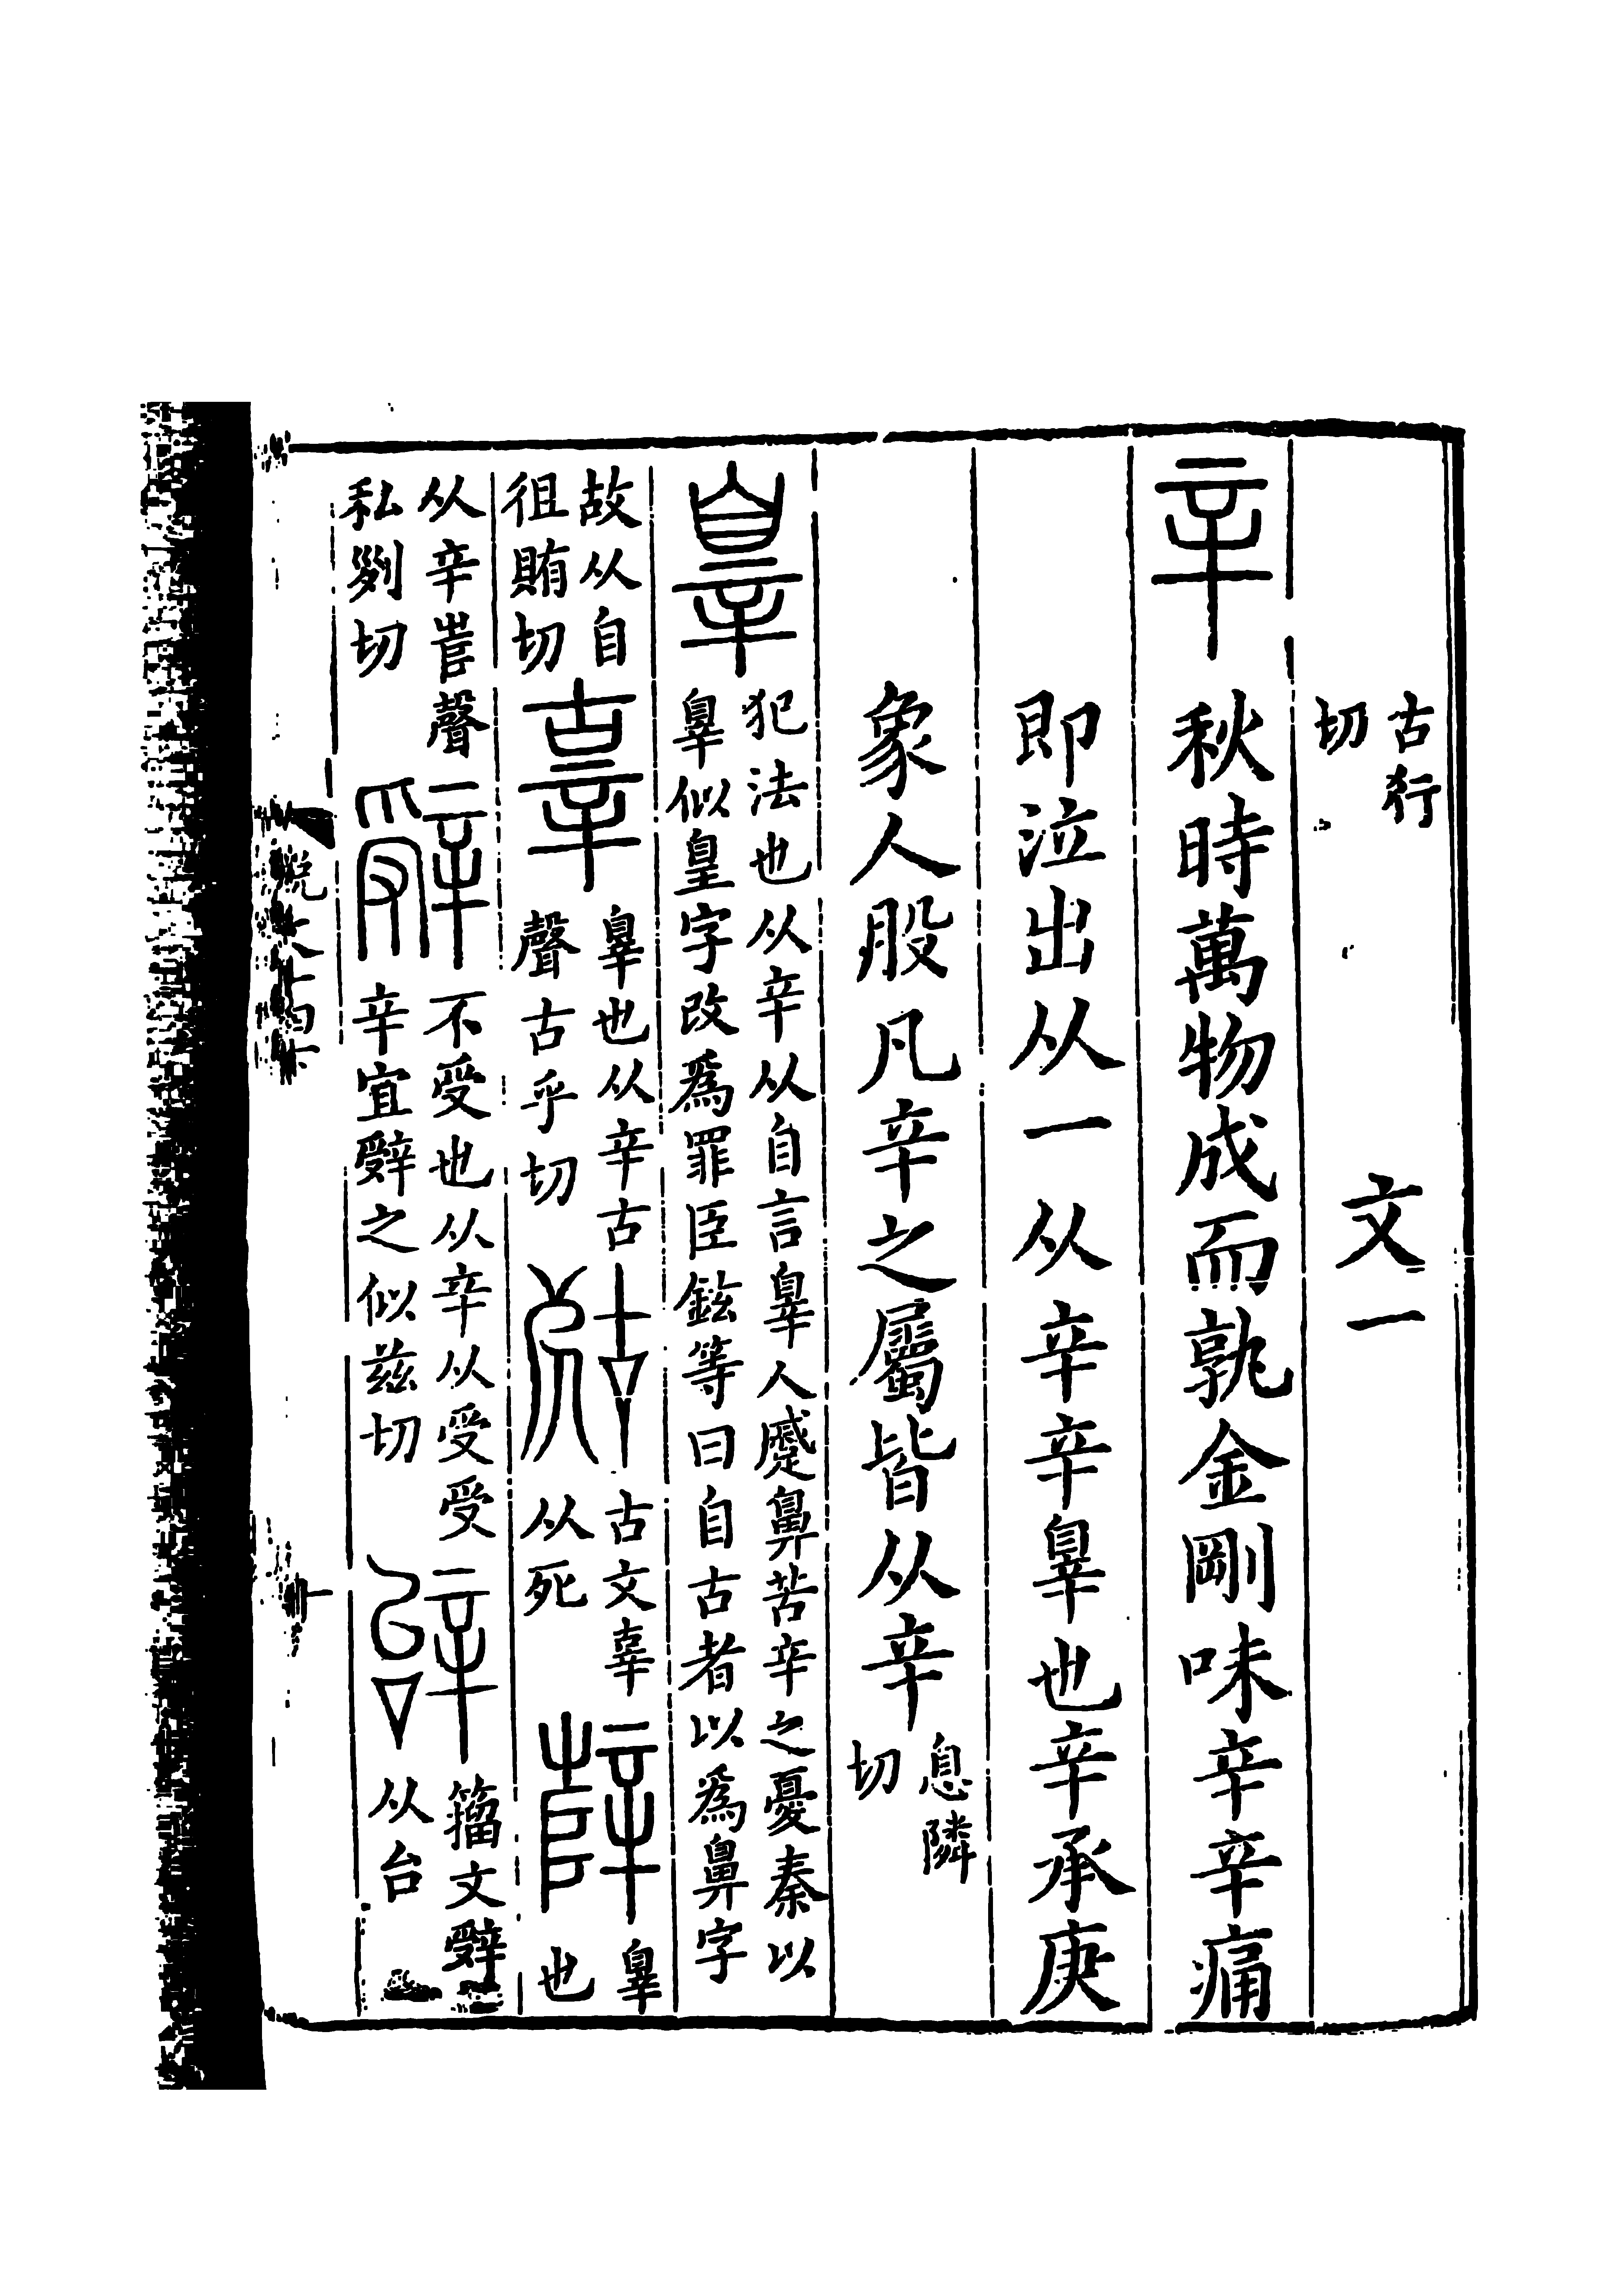 古行切 文一
辛 秋時萬物成而孰金剛味辛辛痛
即泣出从一从䇂䇂辠也辛承庚
象人股凡辛之屬皆从辛 息隣切
辠 犯法也从辛从自言辠人蹙鼻苦辛之憂秦以
辠似皇字改爲罪臣鉉等曰自古者以爲鼻字
故从自
徂賄切
辜 辠也从辛古
聲古乎切
𣨙 古文辜
从死
辥 辠
也
从辛𡴎聲
私列切
辤 不受也从辛从受受
辛宜辤之似兹切
辝 籀文辤
从台